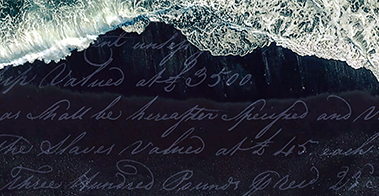 ent unsp
ip, Valued at £3500.
as Shall be hereafter Specified and V
The Slaves Valued at £45 each
Three Hundred Pounds